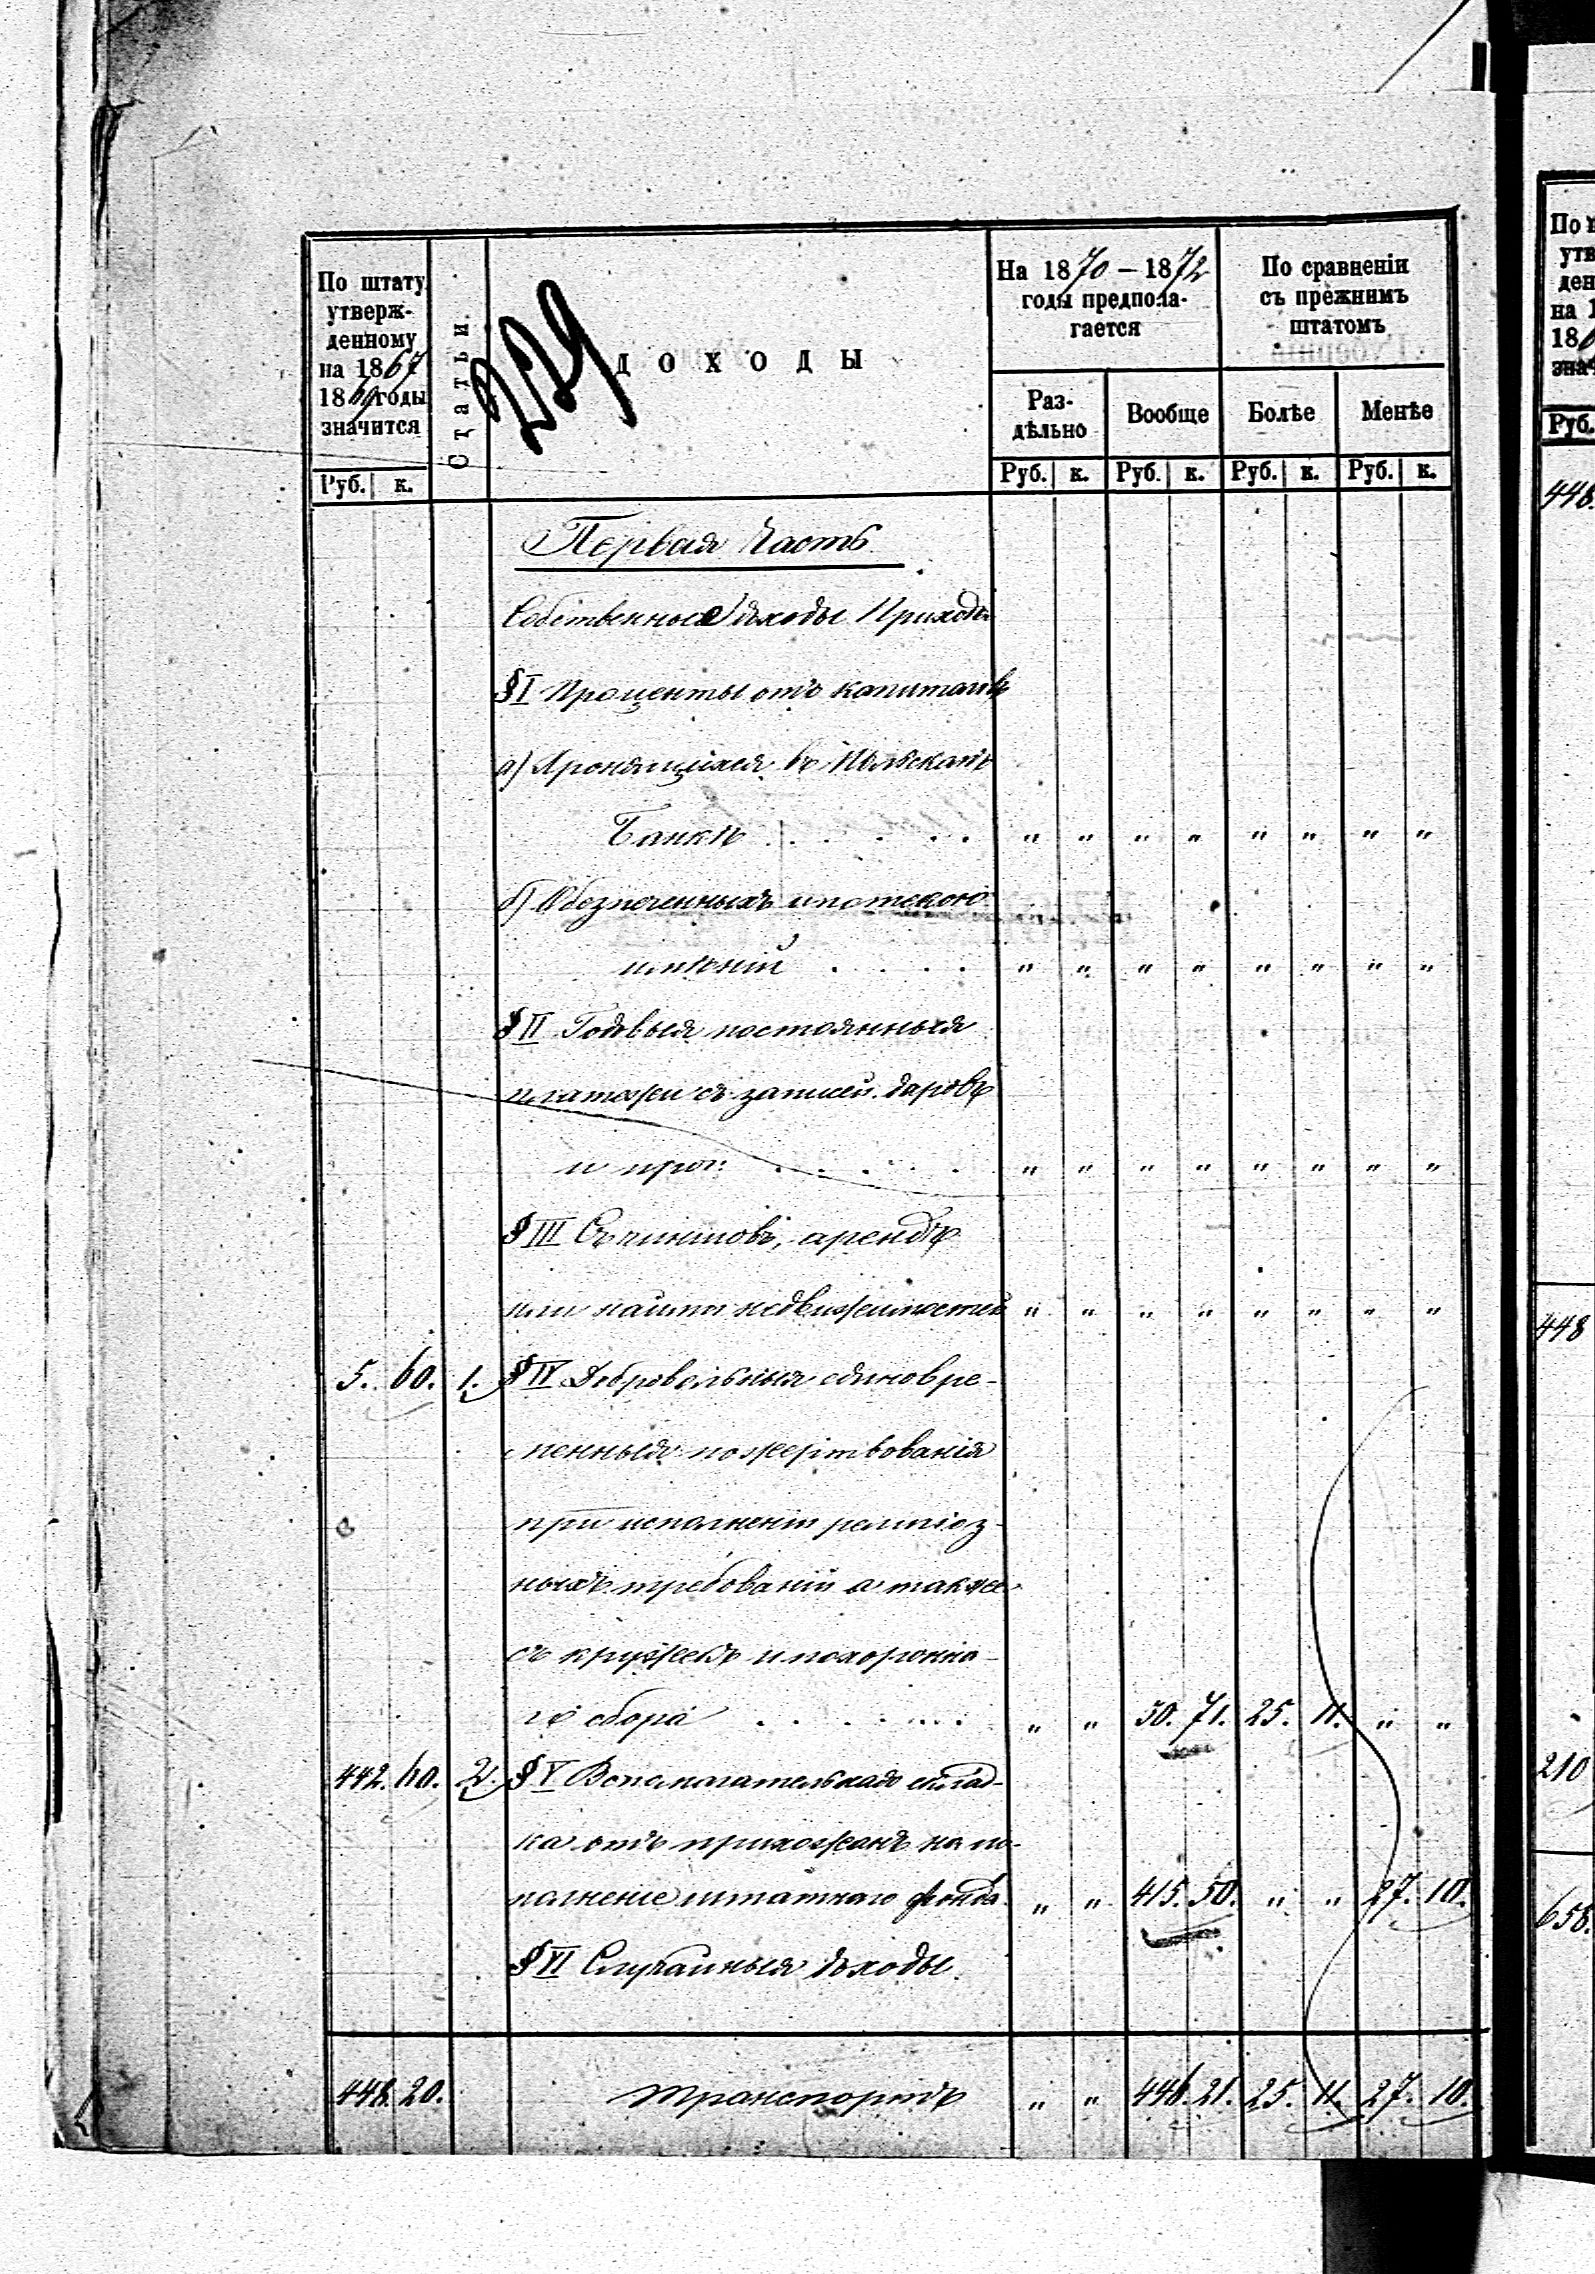 По штату утверж-
денному
на 1867
1869 годы
значится
Статьи.
229
ДОХОДЫ
На 1870 – 1872
годы предпола-
гается
По сравненіи
съ прежнимъ
штатомъ
Раз-
дѣльно
Вообще
Болѣе
Менѣе
Руб. к.
Руб. к. Руб. к. Руб. к. Руб. к.
Первая Часть
Собственные доходы Прихода
§ I Проценты отъ капиталовъ
а) Хронящихся въ Польскомъ
Банкѣ . . . . . " " " " " " " "
б) Обезпеченныхъ ипотекою
имѣній . . . . " " " " " " " "
§ II Годовыя постоянныя
платежи съ записей, даровъ
и проч: . . . . . " " " " " " " "
§ III Съ чиншовъ, арендъ
или найма недвижимостей " " " " " " " "
5. 60. 1. § IV Добровольныя единовре-
менныя пожертвованія
при исполненіи религіоз-
ныхъ требованій а также
съ кружекъ и похоронна-
го сбора . . . . . . " " 30. 71. 25. 11. " "
442. 60. 2. § V Вспомагательная склад-
ка отъ прихожанъ на по-
полненіе штатнаго фонда " " 415. 50. " " 27. 10.
§ VI Случайныя доходы.
448. 20. Транспортъ " " 446. 21. 25. 11. 27. 10.
По
утв
ден
на 1
186
знач
Руб.
448.
448
210
658.